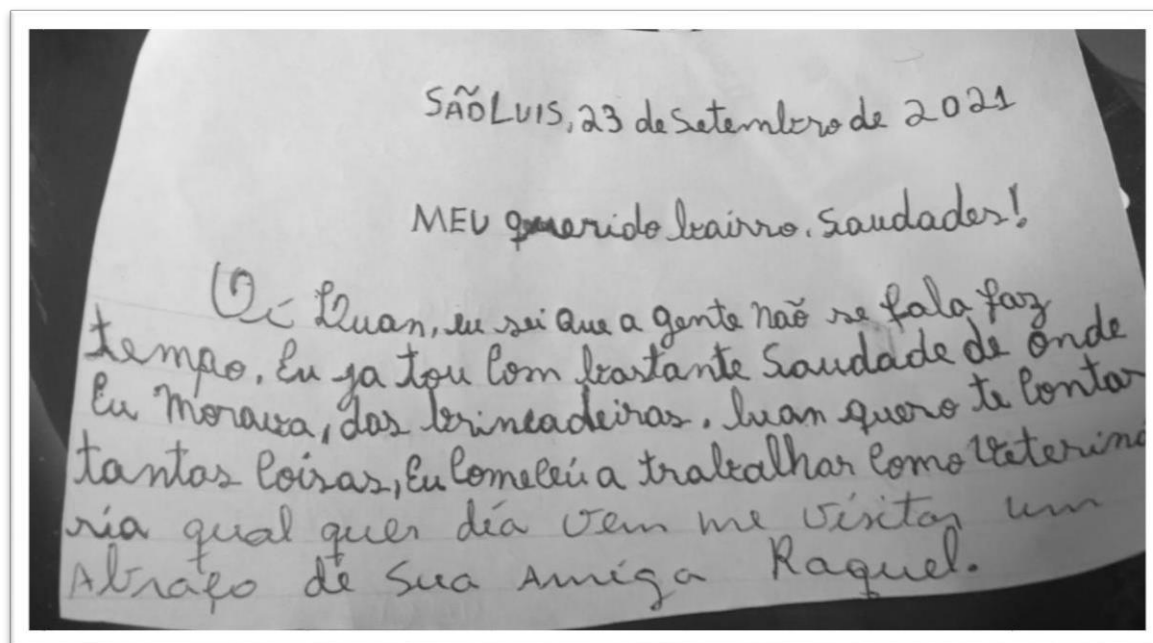 SÃO LUIS, 23 de Setembro de 2021
MEU querido bairro. Saudades!
Oi Luan, eu sei que a gente naõ se fala faz
tempo. Eu ja tou Com bastante Saudade de onde
Eu Morava, das brincadeiras. luan quero te Contar
tantas Coisas, Eu Comecei a trabalhar Como Veteriná
ria qual quer día vem me visitar um
Abraço de Sua Amiga Raquel.